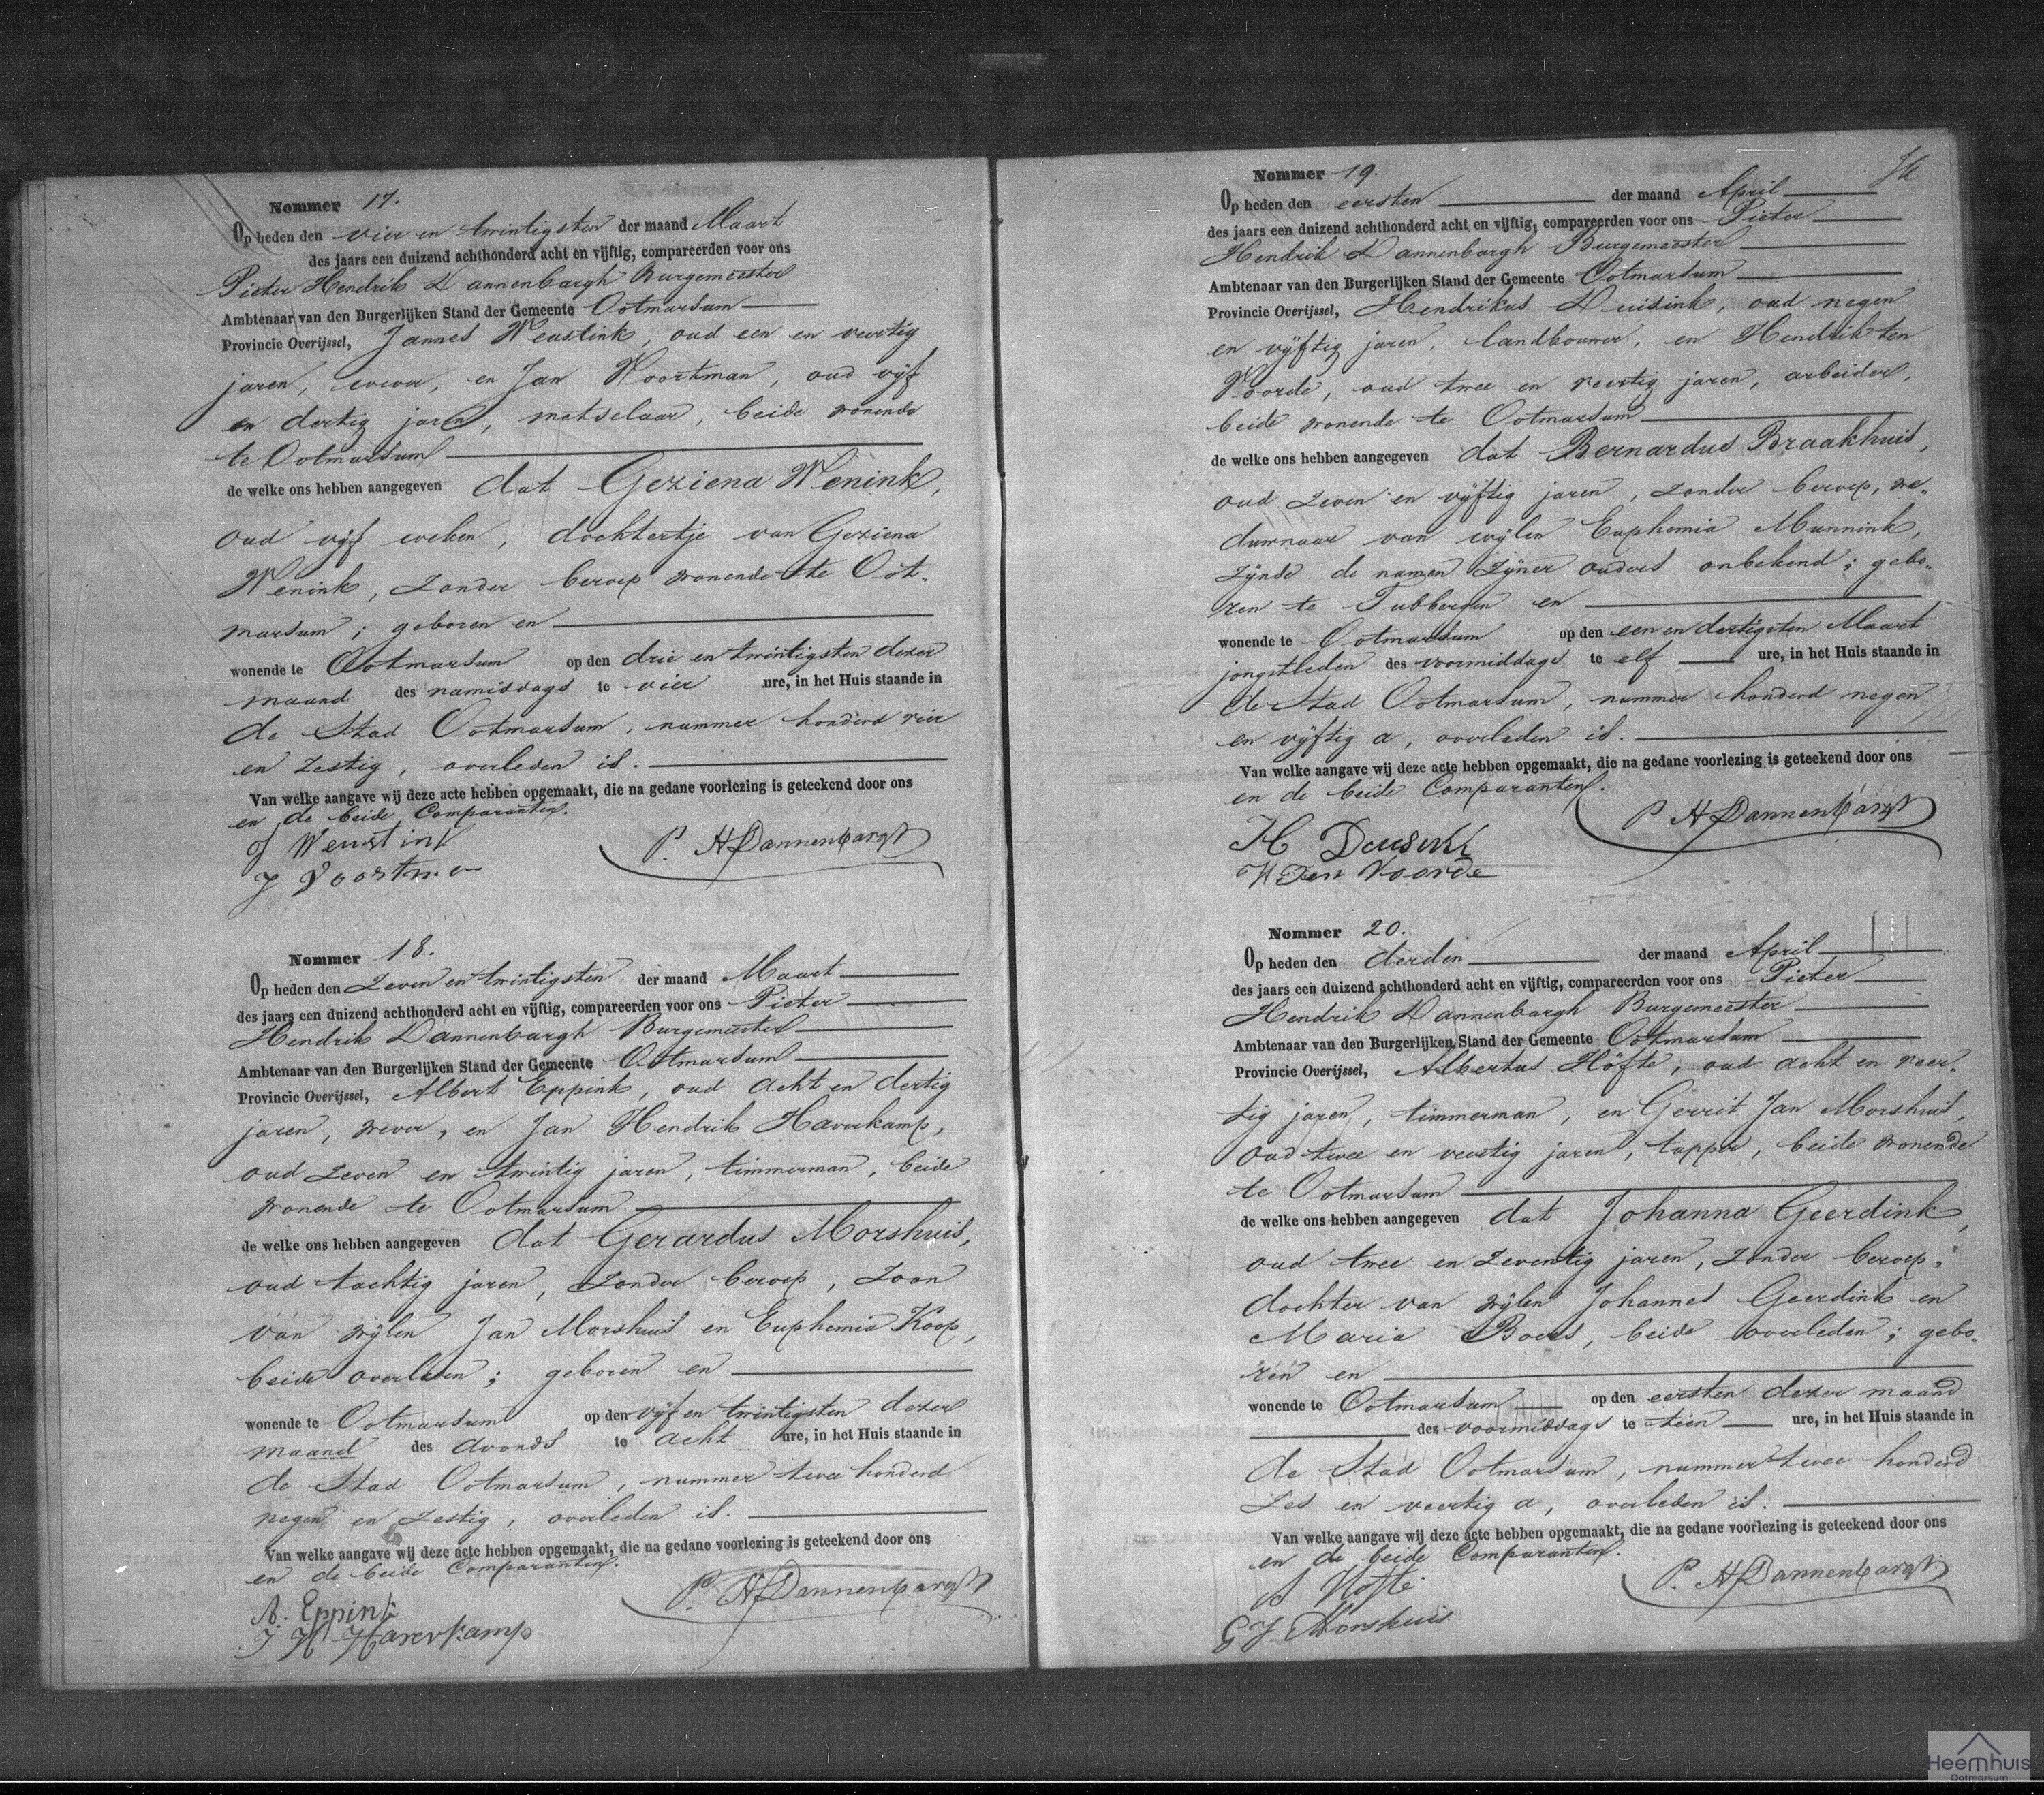 Nommer 17.
Op heden den vier en twintigsten der maand Maart
des jaars een duizend achthonderd acht en vijftig, compareerden voor ons
Pieter Hendrik Dannenbargh Burgemeester
Ambtenaar van den Burgerlijken Stand der Gemeente Ootmarsum
Provincie Overijssel, Jannes Weustink, oud een en veertig
jaren, wever, en Jan Voortman, oud vijf
en dertig jaren, metselaar, beide wonende
te Ootmarsum
de welke ons hebben aangegeven dat Geziena Wenink,
oud vijf weken, dochtertje van Geziena
Wenink, zonder beroep wonende te Oot-
marsum; geboren en
wonende te Ootmarsum op den drie en twintigsten dezer
maand des namiddags te vier ure, in het Huis staande in
de Stad Ootmarsum, nummer honderd vier
en zestig, overleden is.
Van welke aangave wij deze acte hebben opgemaakt, die na gedane voorlezing is geteekend door ons
en de beide Comparanten.
J Weustink
P. H Dannenbargh
J Voortman
Nommer 18.
Op heden den zeven en twintigsten der maand Maart
des jaars een duizend achthonderd acht en vijftig, compareerden voor ons Pieter
Hendrik Dannenbargh Burgemeester
Ambtenaar van den Burgerlijken Stand der Gemeente Ootmarsum
Provincie Overijssel, Albert Eppink, oud acht en dertig
jaren, wever, en Jan Hendrik Haverkamp,
oud zeven en twintig jaren, timmerman, beide
wonende te Ootmarsum
de welke ons hebben aangegeven dat Gerardus Morshuis,
oud tachtig jaren, zonder beroep, zoon
van wijlen Jan Morshuis en Euphemia Koop,
beide overleden; geboren en
wonende te Ootmarsum op den vijf en twintigsten dezer
maand des avonds te acht ure, in het Huis staande in
de Stad Ootmarsum, nummer twee honderd
negen en zestig, overleden is.
Van welke aangave wij deze acte hebben opgemaakt, die na gedane voorlezing is geteekend door ons
en de beide Comparanten.
A. Eppink
P. H Dannenbargh
J H Haverkamp
Nommer 19.
Op heden den eersten der maand April
des jaars een duizend achthonderd acht en vijftig, compareerden voor ons Pieter
Hendrik Dannenbargh Burgemeester
Ambtenaar van den Burgerlijken Stand der Gemeente Ootmarsum
Provincie Overijssel, Hendrikus Duisink, oud negen
en vijftig jaren, landbouwer, en Hendrik ten
Voorde, oud twee en veertig jaren, arbeider,
beide wonende te Ootmarsum
de welke ons hebben aangegeven dat Bernardus Braakhuis,
oud zeven en vijftig jaren, zonder beroep, we-
duwnaar van wijlen Euphemia Munnink,
zijnde de namen zijner ouders onbekend; gebo-
ren te Tubbergen en
wonende te Ootmarsum op den een en dertigsten Maart
jongstleden des voormiddags te elf ure, in het Huis staande in
de Stad Ootmarsum, nummer honderd negen
en vijftig a, overleden is.
Van welke aangave wij deze acte hebben opgemaakt, die na gedane voorlezing is geteekend door ons
en de beide Comparanten.
P H Dannenbargh
H Deusink
H Ten Voorde
Nommer 20.
Op heden den derden der maand April
des jaars een duizend achthonderd acht en vijftig, compareerden voor ons Pieter
Hendrik Dannenbargh Burgemeester
Ambtenaar van den Burgerlijken Stand der Gemeente Ootmarsum
Provincie Overijssel, Albertus Höfte, oud acht en veer-
tig jaren, timmerman, en Gerrit Jan Morshuis,
oud twee en veertig jaren, tapper, beide wonende
te Ootmarsum
de welke ons hebben aangegeven dat Johanna Geerdink,
oud twee en zeventig jaren, zonder beroep,
dochter van wijlen Johannes Geerdink en
Maria Boers, beide overleden; gebo-
ren en
wonende te Ootmarsum op den eersten dezer maand
des voormiddags te tien ure, in het Huis staande in
de Stad Ootmarsum, nummer twee honderd
zes en veertig a, overleden is.
Van welke aangave wij deze acte hebben opgemaakt, die na gedane voorlezing is geteekend door ons
en de beide Comparanten.
A Hofte
P. H Dannenbargh
G J Morshuis
Heemhuis
Ootmarsum